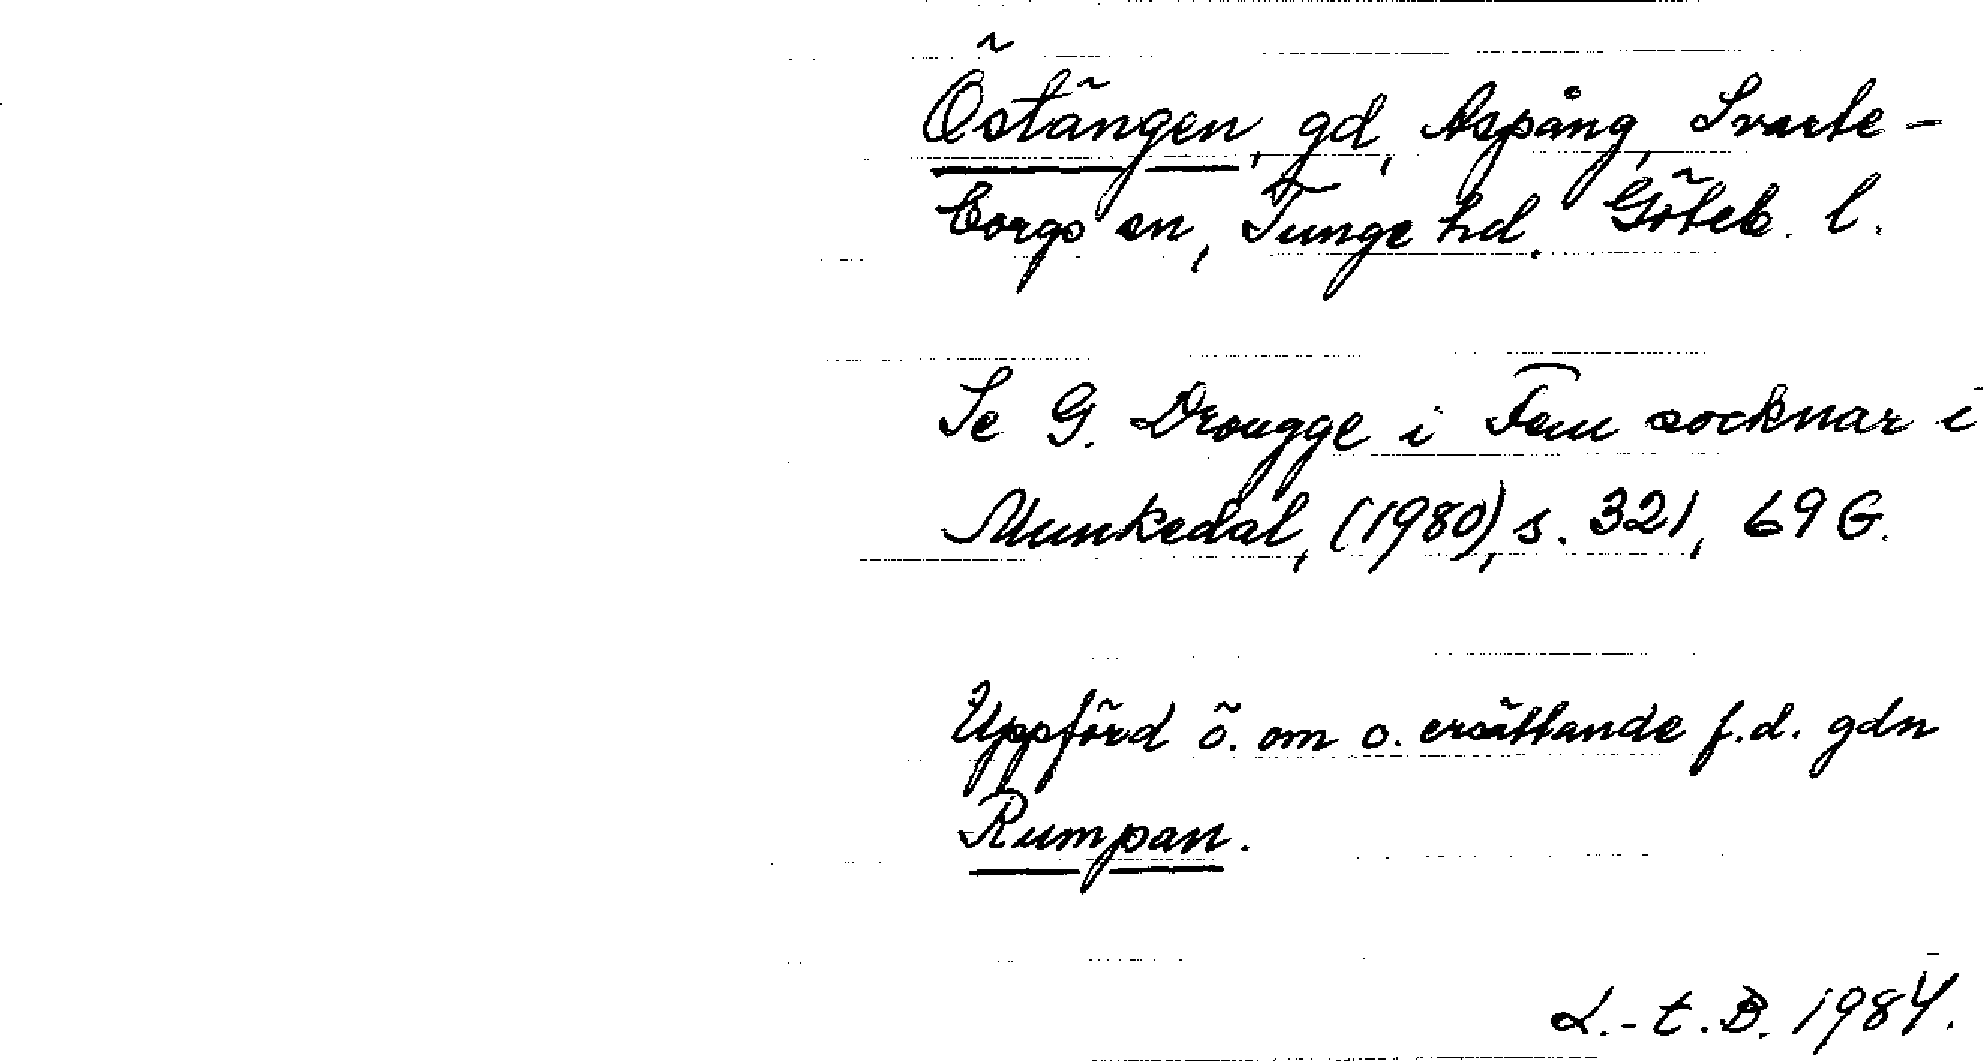 Östängen, gd, Aspång, Svarte-
borgs sn, Tunge hd. Göteb. l.
Se G. Drougge i Fem socknar i
Munkedal, (1980), s. 321, 69 G.
Uppförd ö. om o. ersättande f.d. gdn
Rumpan.
L.-t.B. 1984.